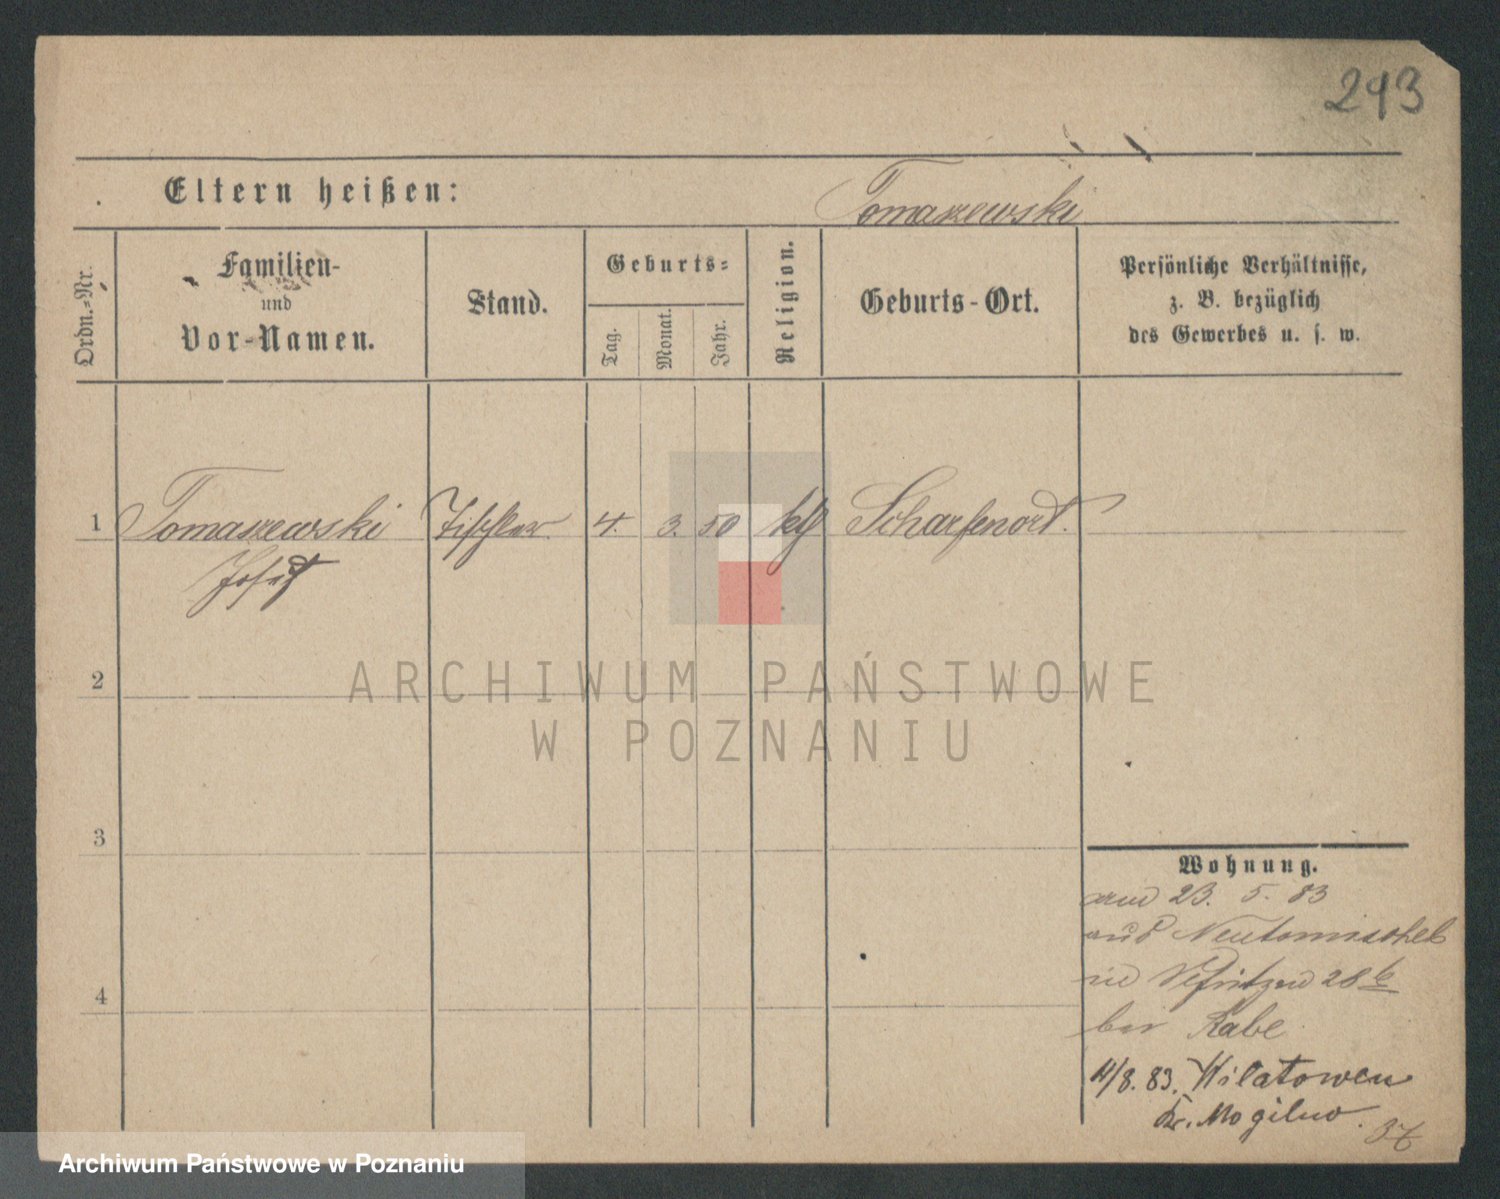 293
Eltern heißen: Tomaszewski
Ordn.-Nr.
Familien-
und
Vor-Namen.
Stand.
Geburts-
Tag.
Monat.
Jahr.
Religion.
Geburts-Ort.
Persönliche Verhältnisse,
z. B. bezüglich
des Gewerbes u. s. w.
1 Tomaszewski Tischler 4. 3. 50 kth Scharfenort.
Josef
2
ARCHIWUM PAŃSTWOWE
W POZNANIU
3
Wohnung.
23. 5. 83
aus Neutomischel
in 28 b
bei Rabe
4
11/8. 83. Wilatowen
Kr. Mogilno.
37
Archiwum Państwowe w Poznaniu